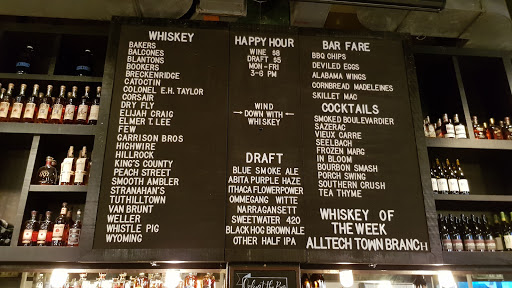 WHISKEY
BAKERS
BALCONES
BLANTONS
BOOKERS
BRECKENRIDGE
CATOCTIN
COLONEL E.H. TAYLOR
CORSAIR
DRY FLY
ELIJAH CRAIG
ELMER T. LEE
FEW
GARRISON BROS
HIGHWIRE
HILLROCK
KING'S COUNTY
PEACH STREET
SMOOTH AMBLER
STRANAHAN'S
TUTHILLTOWN
VAN BRUNT
WELLER
WHISTLE PIG
WYOMING
HAPPY HOUR
WINE $8
DRAFT $5
MON-FRI
3-6 PM
WIND
DOWN WITH
WHISKEY
DRAFT
BLUE SMOKE ALE
ABITA PURPLE HAZE
ITHACA FLOWERPOWER
OMMEGANG WITTE
NARRAGANSETT
SWEETWATER 420
BLACK HOG BROWN ALE
OTHER HALF IPA
BAR FARE
BBQ CHIPS
DEVILED EGGS
ALABAMA WINGS
CORNBREAD MADELEINES
SKILLET MAC
COCKTAILS
SMOKED BOULEVARDIER
SAZERAC
VIEUX CARRE
SEELBACH
FROZEN MARG
IN BLOOM
BOURBON SMASH
PORCH SWING
SOUTHERN CRUSH
TEA THYME
WHISKEY OF
THE WEEK
ALLTECH TOWN BRANCH